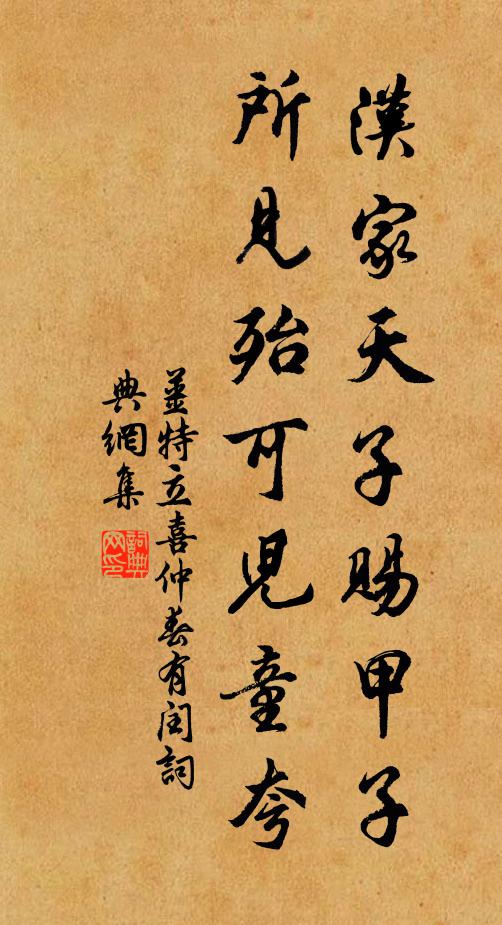 漢家天子賜甲子
所見殆可兒童夸
姜特立喜仲春有閏詞
典網集
詞典網印